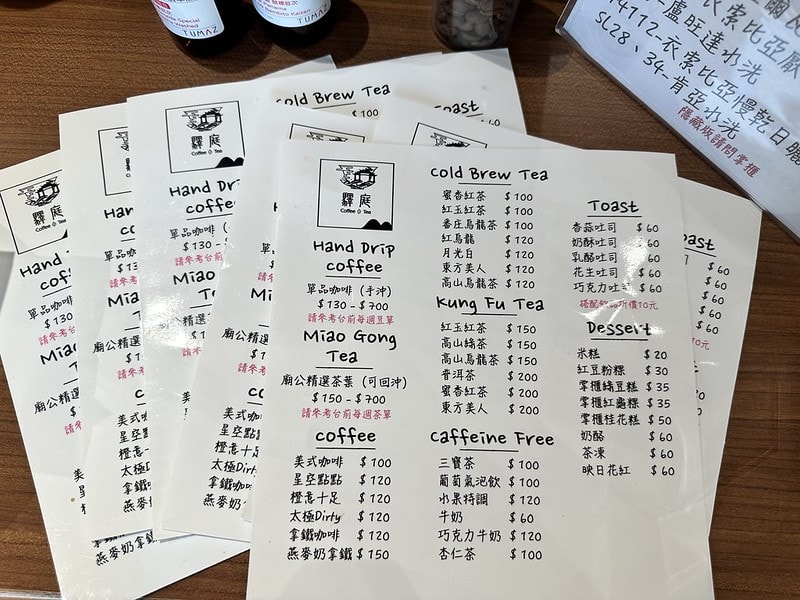 TUMAZ
TUMAZ
14112-衣索比亞慢乾日曬
SL28、34-肯亞水洗
隱藏版請問掌櫃
Cold Brew Tea
$100
Toast
驛庭
Coffee & Tea
Hand Drip
coffee
單品咖啡（手沖）
$130 - $700
請參考台前每週豆單
Miao Gong
Tea
廟公精選茶葉（可回沖）
$150 - $700
請參考台前每週茶單
coffee
美式咖啡 $100
星空點點 $120
橙意十足 $120
太極Dirty $120
拿鐵咖啡 $120
燕麥奶拿鐵 $150
Cold Brew Tea
蜜香紅茶 $100
紅玉紅茶 $100
番庄烏龍茶 $100
紅烏龍 $120
月光白 $120
東方美人 $120
高山烏龍茶 $120
Kung Fu Tea
紅玉紅茶 $150
高山綠茶 $150
高山烏龍茶 $150
普洱茶 $200
蜜香紅茶 $200
東方美人 $200
Caffeine Free
三寶茶 $100
葡萄氣泡飲 $100
水果特調 $120
牛奶 $60
巧克力牛奶 $120
杏仁茶 $100
Toast
香蒜吐司 $60
奶酥吐司 $60
乳酪吐司 $60
花生吐司 $60
巧克力吐司 $60
搭配飲品折價10元
Dessert
米糕 $20
紅豆粉粿 $30
掌櫃綠豆糕 $35
掌櫃紅龜粿 $35
掌櫃桂花糕 $50
奶酪 $60
茶凍 $60
映日花紅 $60